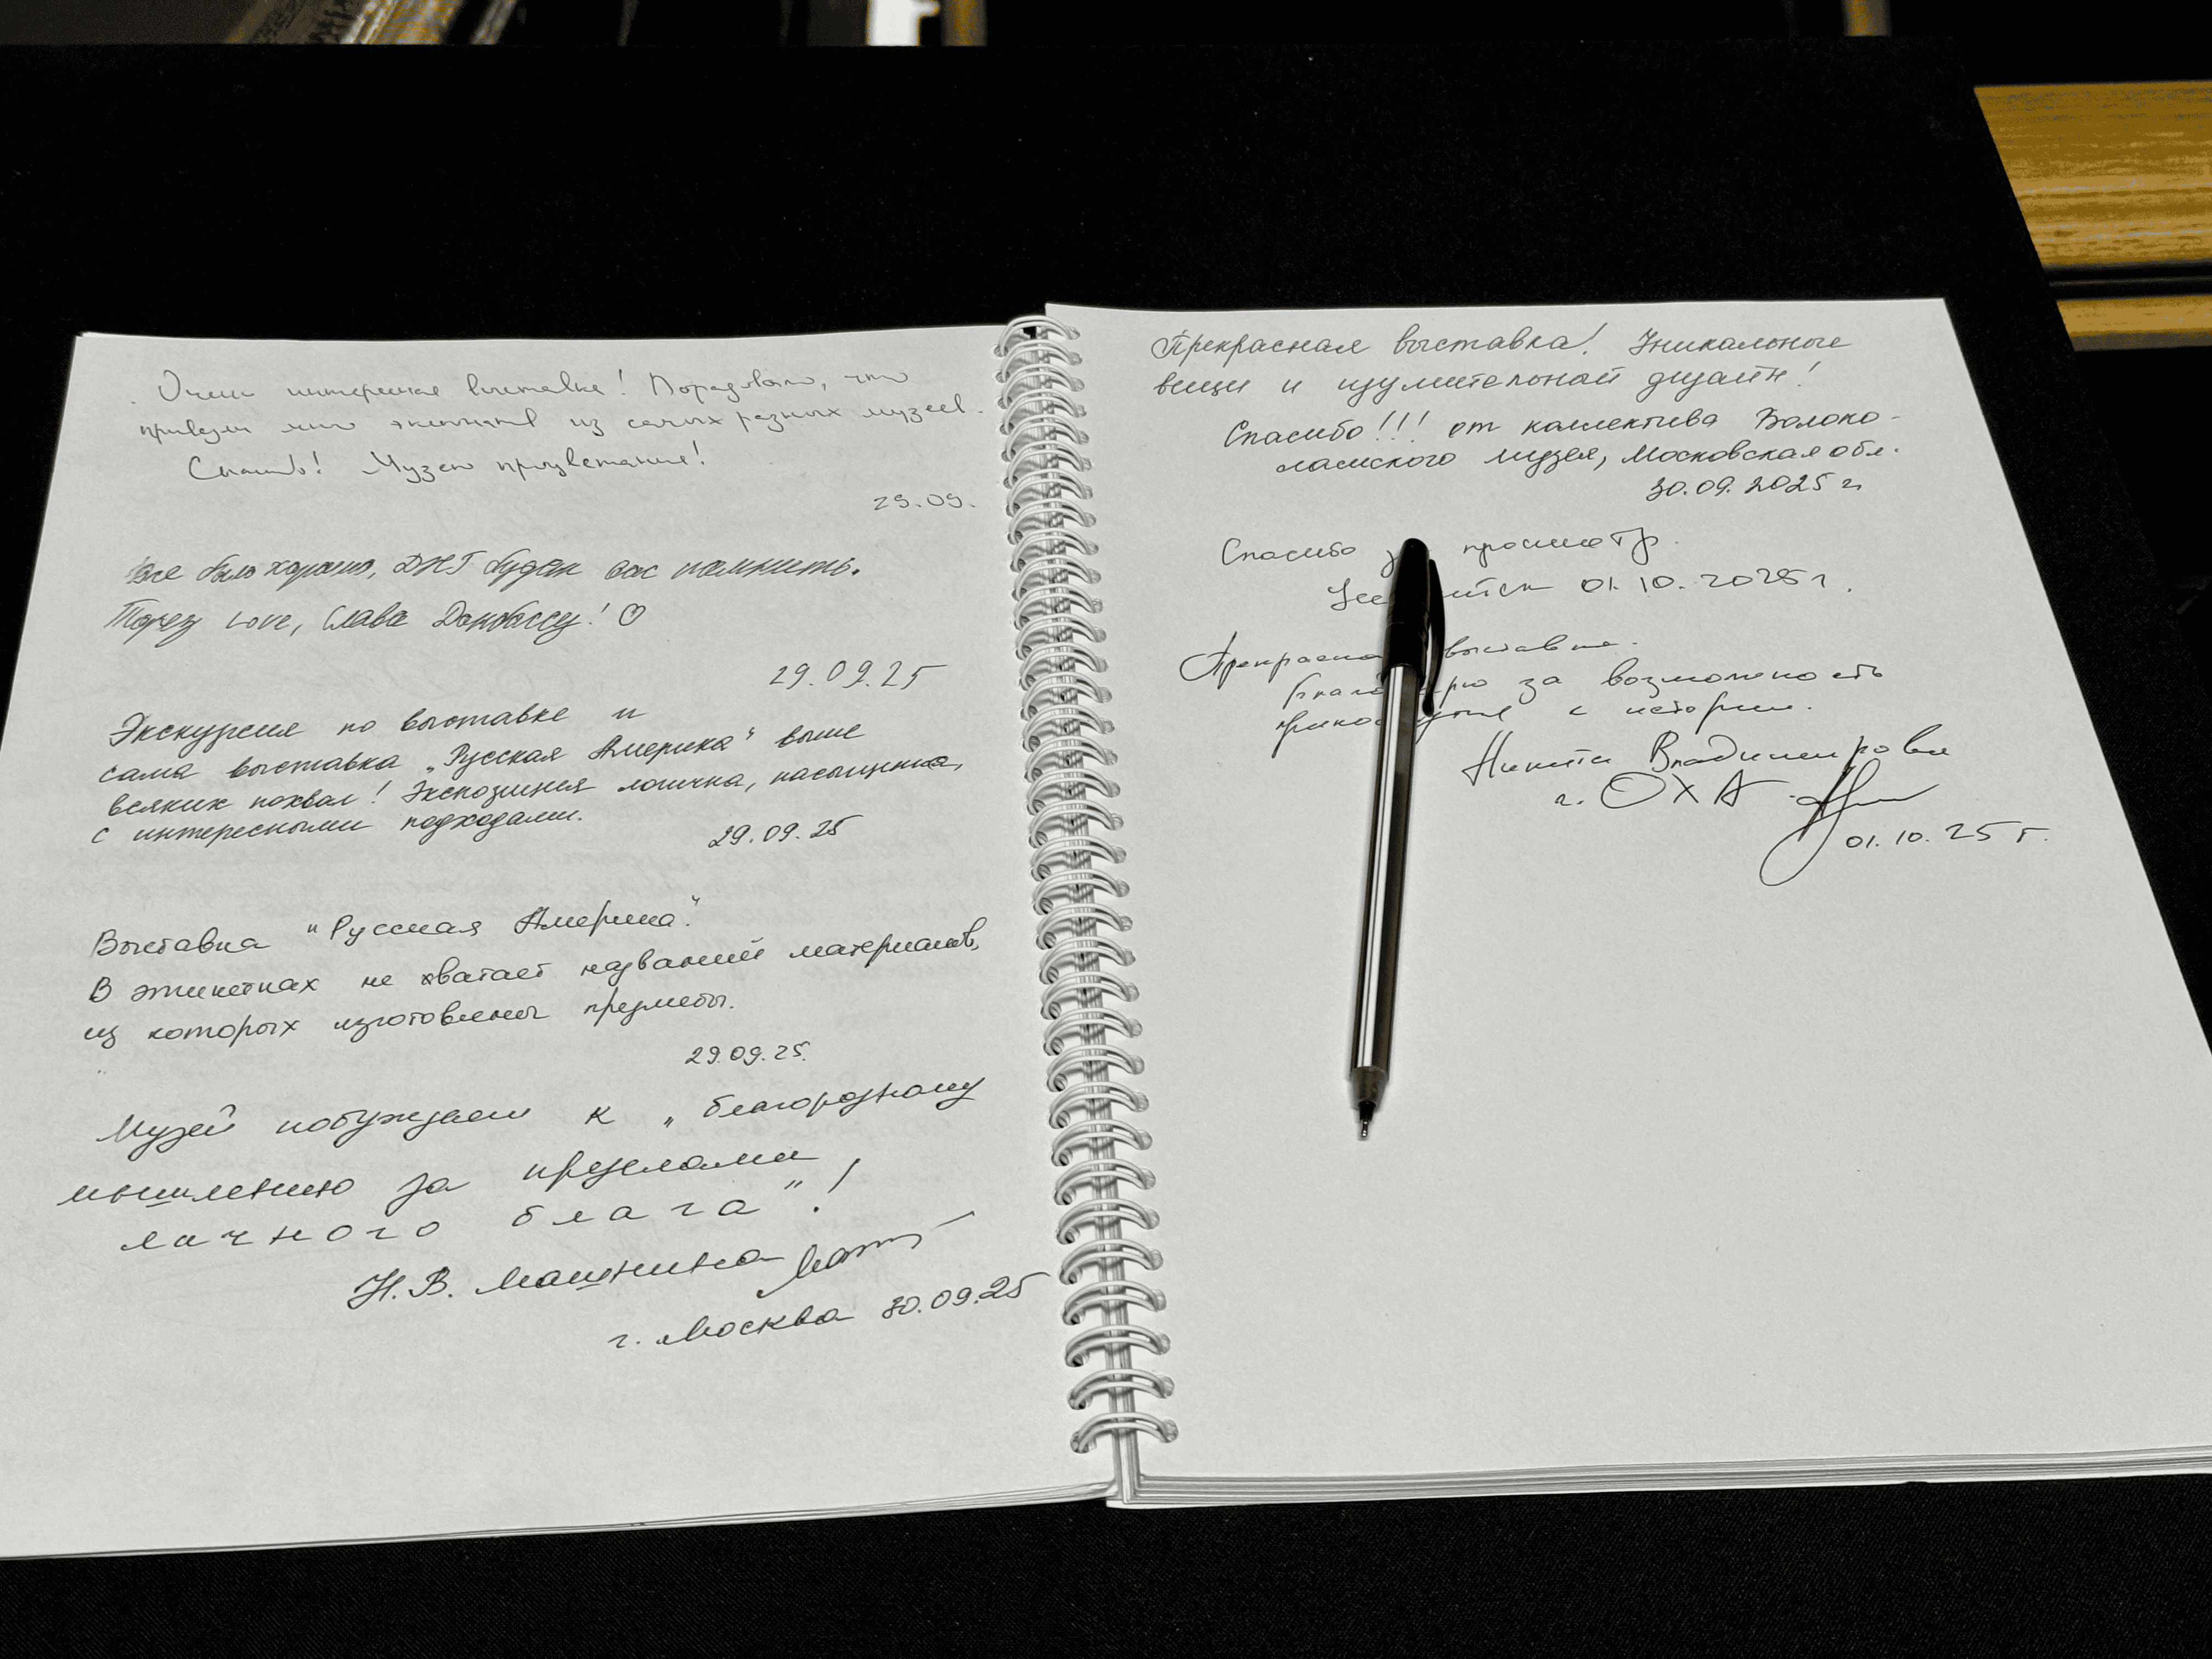 Очень интересная выставка! Порадовало, что
привезли много экспонатов из самых разных музеев.
Спасибо! Музею процветания!
29.09.
Все было хорошо, ДНТ будет вас помнить.
Love, Слава Донбассу! ♡
29.09.25
Экскурсия по выставке и
сама выставка „Русская Америка“ выше
всяких похвал! Экспозиция логична, насыщенна,
с интересными подходами.
29.09.25
Выставка "Русская Америка".
В этикетках не хватает названий материалов,
из которых изготовлены предметы.
29.09.25.
Музей побуждает к „благородному
мышлению за пределами
личного блага"!
Н.В. Машнина
г. Москва 30.09.25
Прекрасная выставка! Уникальные
вещи и изумительный дизайн!
Спасибо!!! от коллектива Волоко-
ламского музея, Московская обл.
30.09.2025 г.
Спасибо просмотр.
01.10.2025 г.
выставка.
за возможность
к истории.
Никита Владимирович
г. ОХА
01.10.25 г.